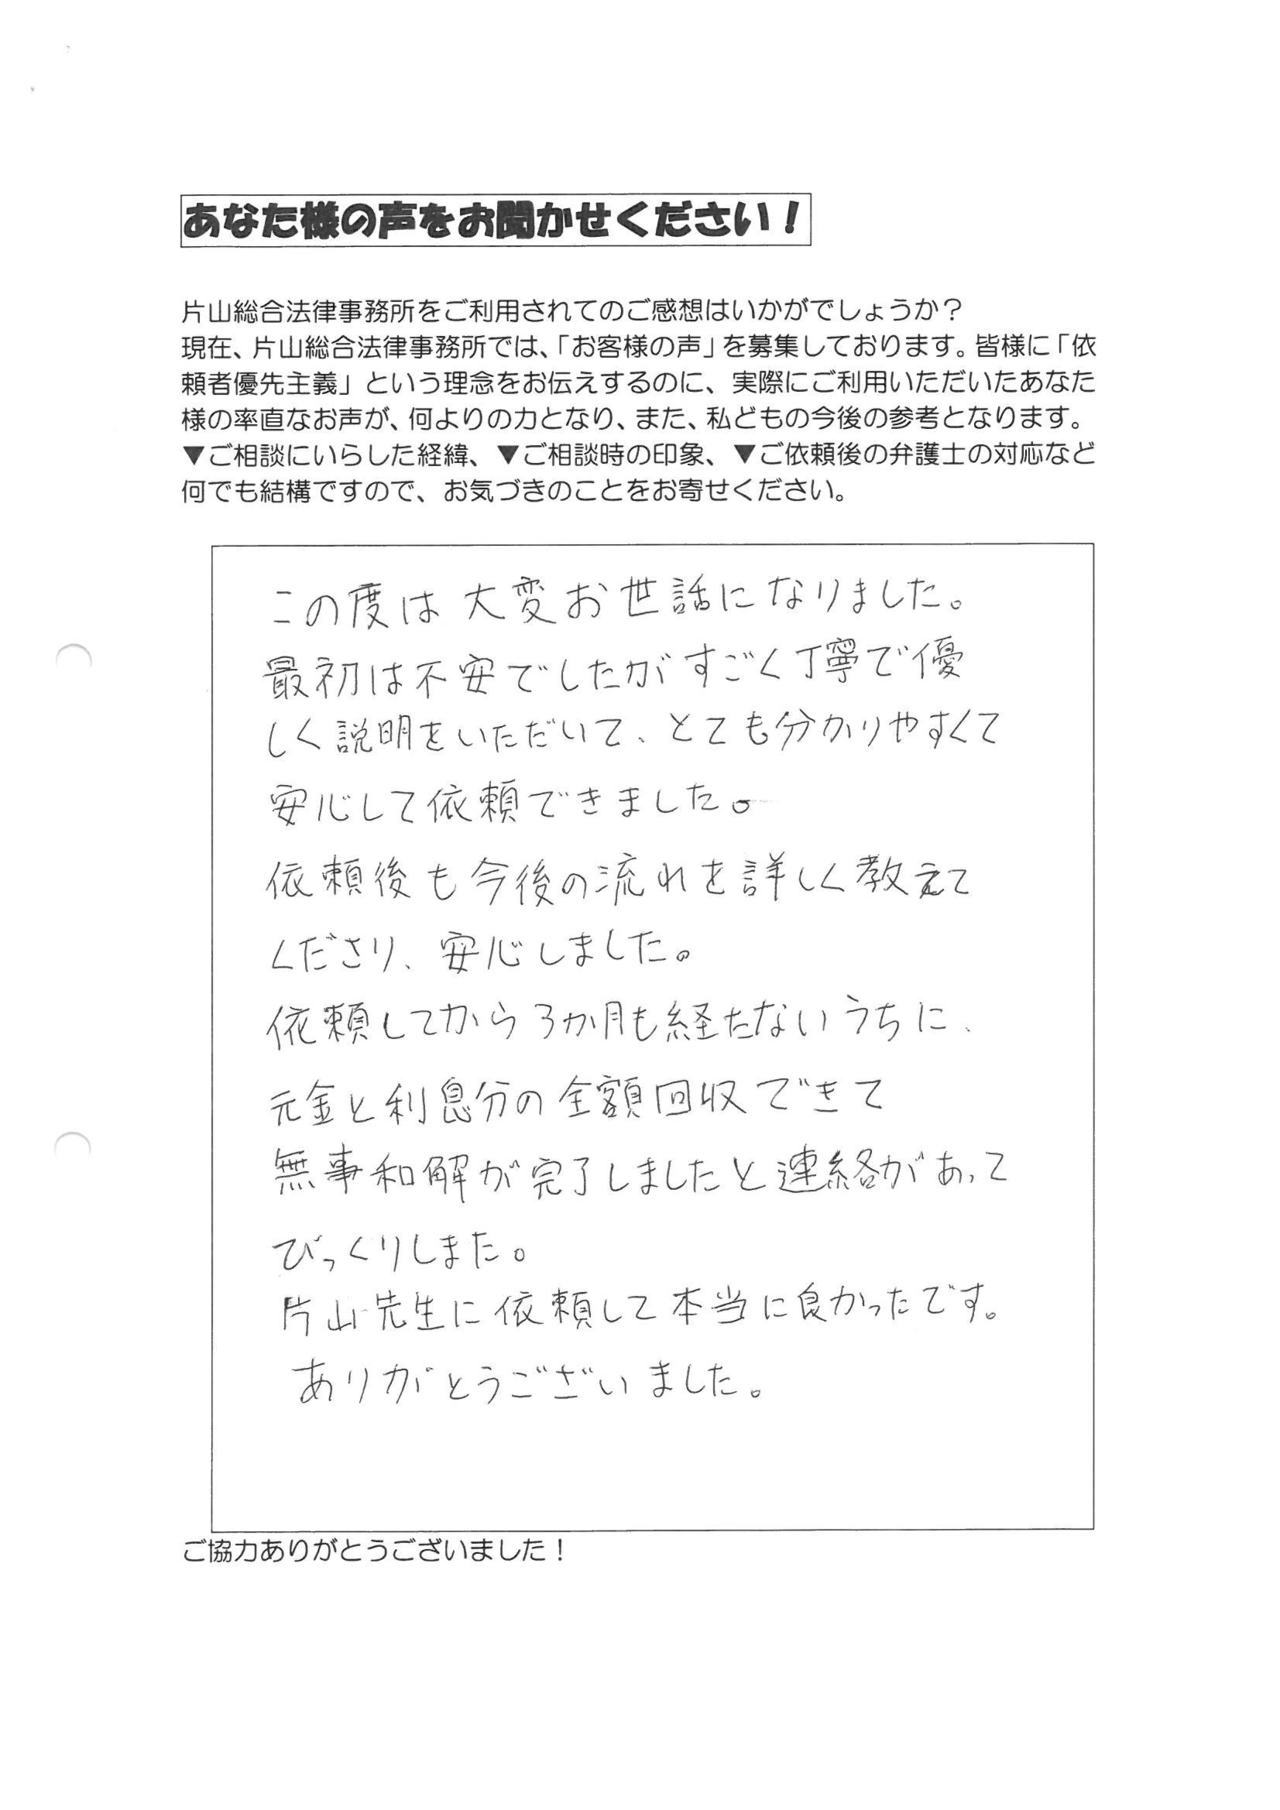 あなた様の声をお聞かせください！
片山総合法律事務所をご利用されてのご感想はいかがでしょうか？
現在、片山総合法律事務所では、「お客様の声」を募集しております。皆様に「依
頼者優先主義」という理念をお伝えするのに、実際にご利用いただいたあなた
様の率直なお声が、何よりの力となり、また、私どもの今後の参考となります。
▼ご相談にいらした経緯、▼ご相談時の印象、▼ご依頼後の弁護士の対応など
何でも結構ですので、お気づきのことをお寄せください。
この度は大変お世話になりました。
最初は不安でしたがすごく丁寧で優
しく説明をいただいて、とても分かりやすくて
安心して依頼できました。
依頼後も今後の流れを詳しく教えて
くださり、安心しました。
依頼してから3か月も経たないうちに、
元金と利息分の全額回収できて
無事和解が完了しましたと連絡があって
びっくりしまた。
片山先生に依頼して本当に良かったです。
ありがとうございました。
ご協力ありがとうございました！